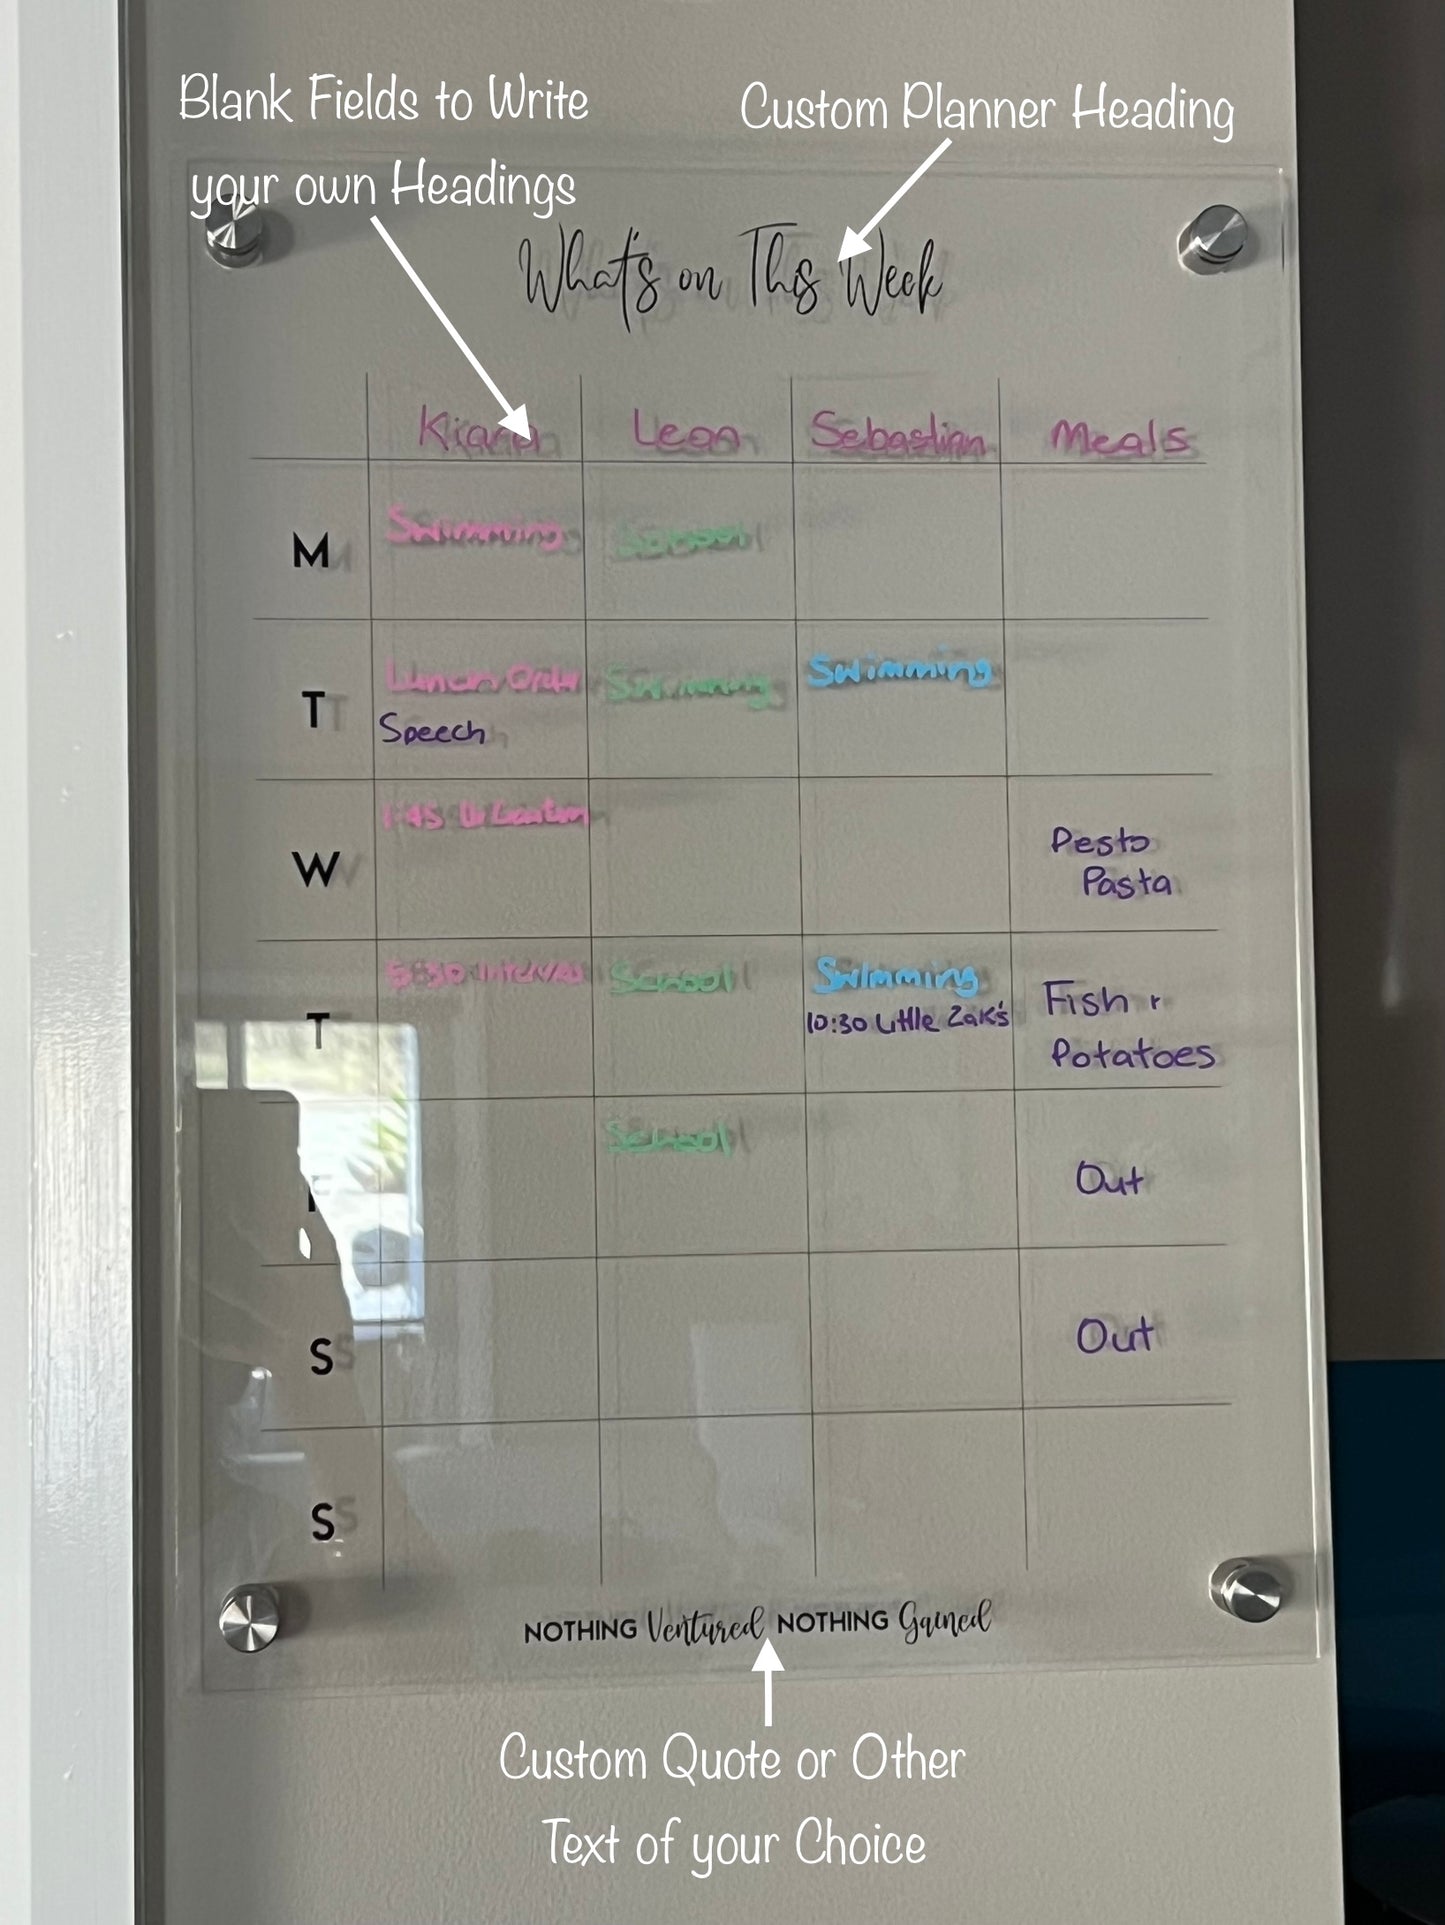 Blank Fields to Write
your own Headings
Custom Planner Heading
What's on This Week
Kiana Leon Sebastian Meals
M Swimming School
T Lunch Order Swimming Swimming
Speech
W 1:45
Pesto
Pasta
T 5:30 School Swimming Fish +
10:30 Little Zak's Potatoes
F School Out
S Out
S
NOTHING Ventured NOTHING Gained
Custom Quote or Other
Text of your Choice